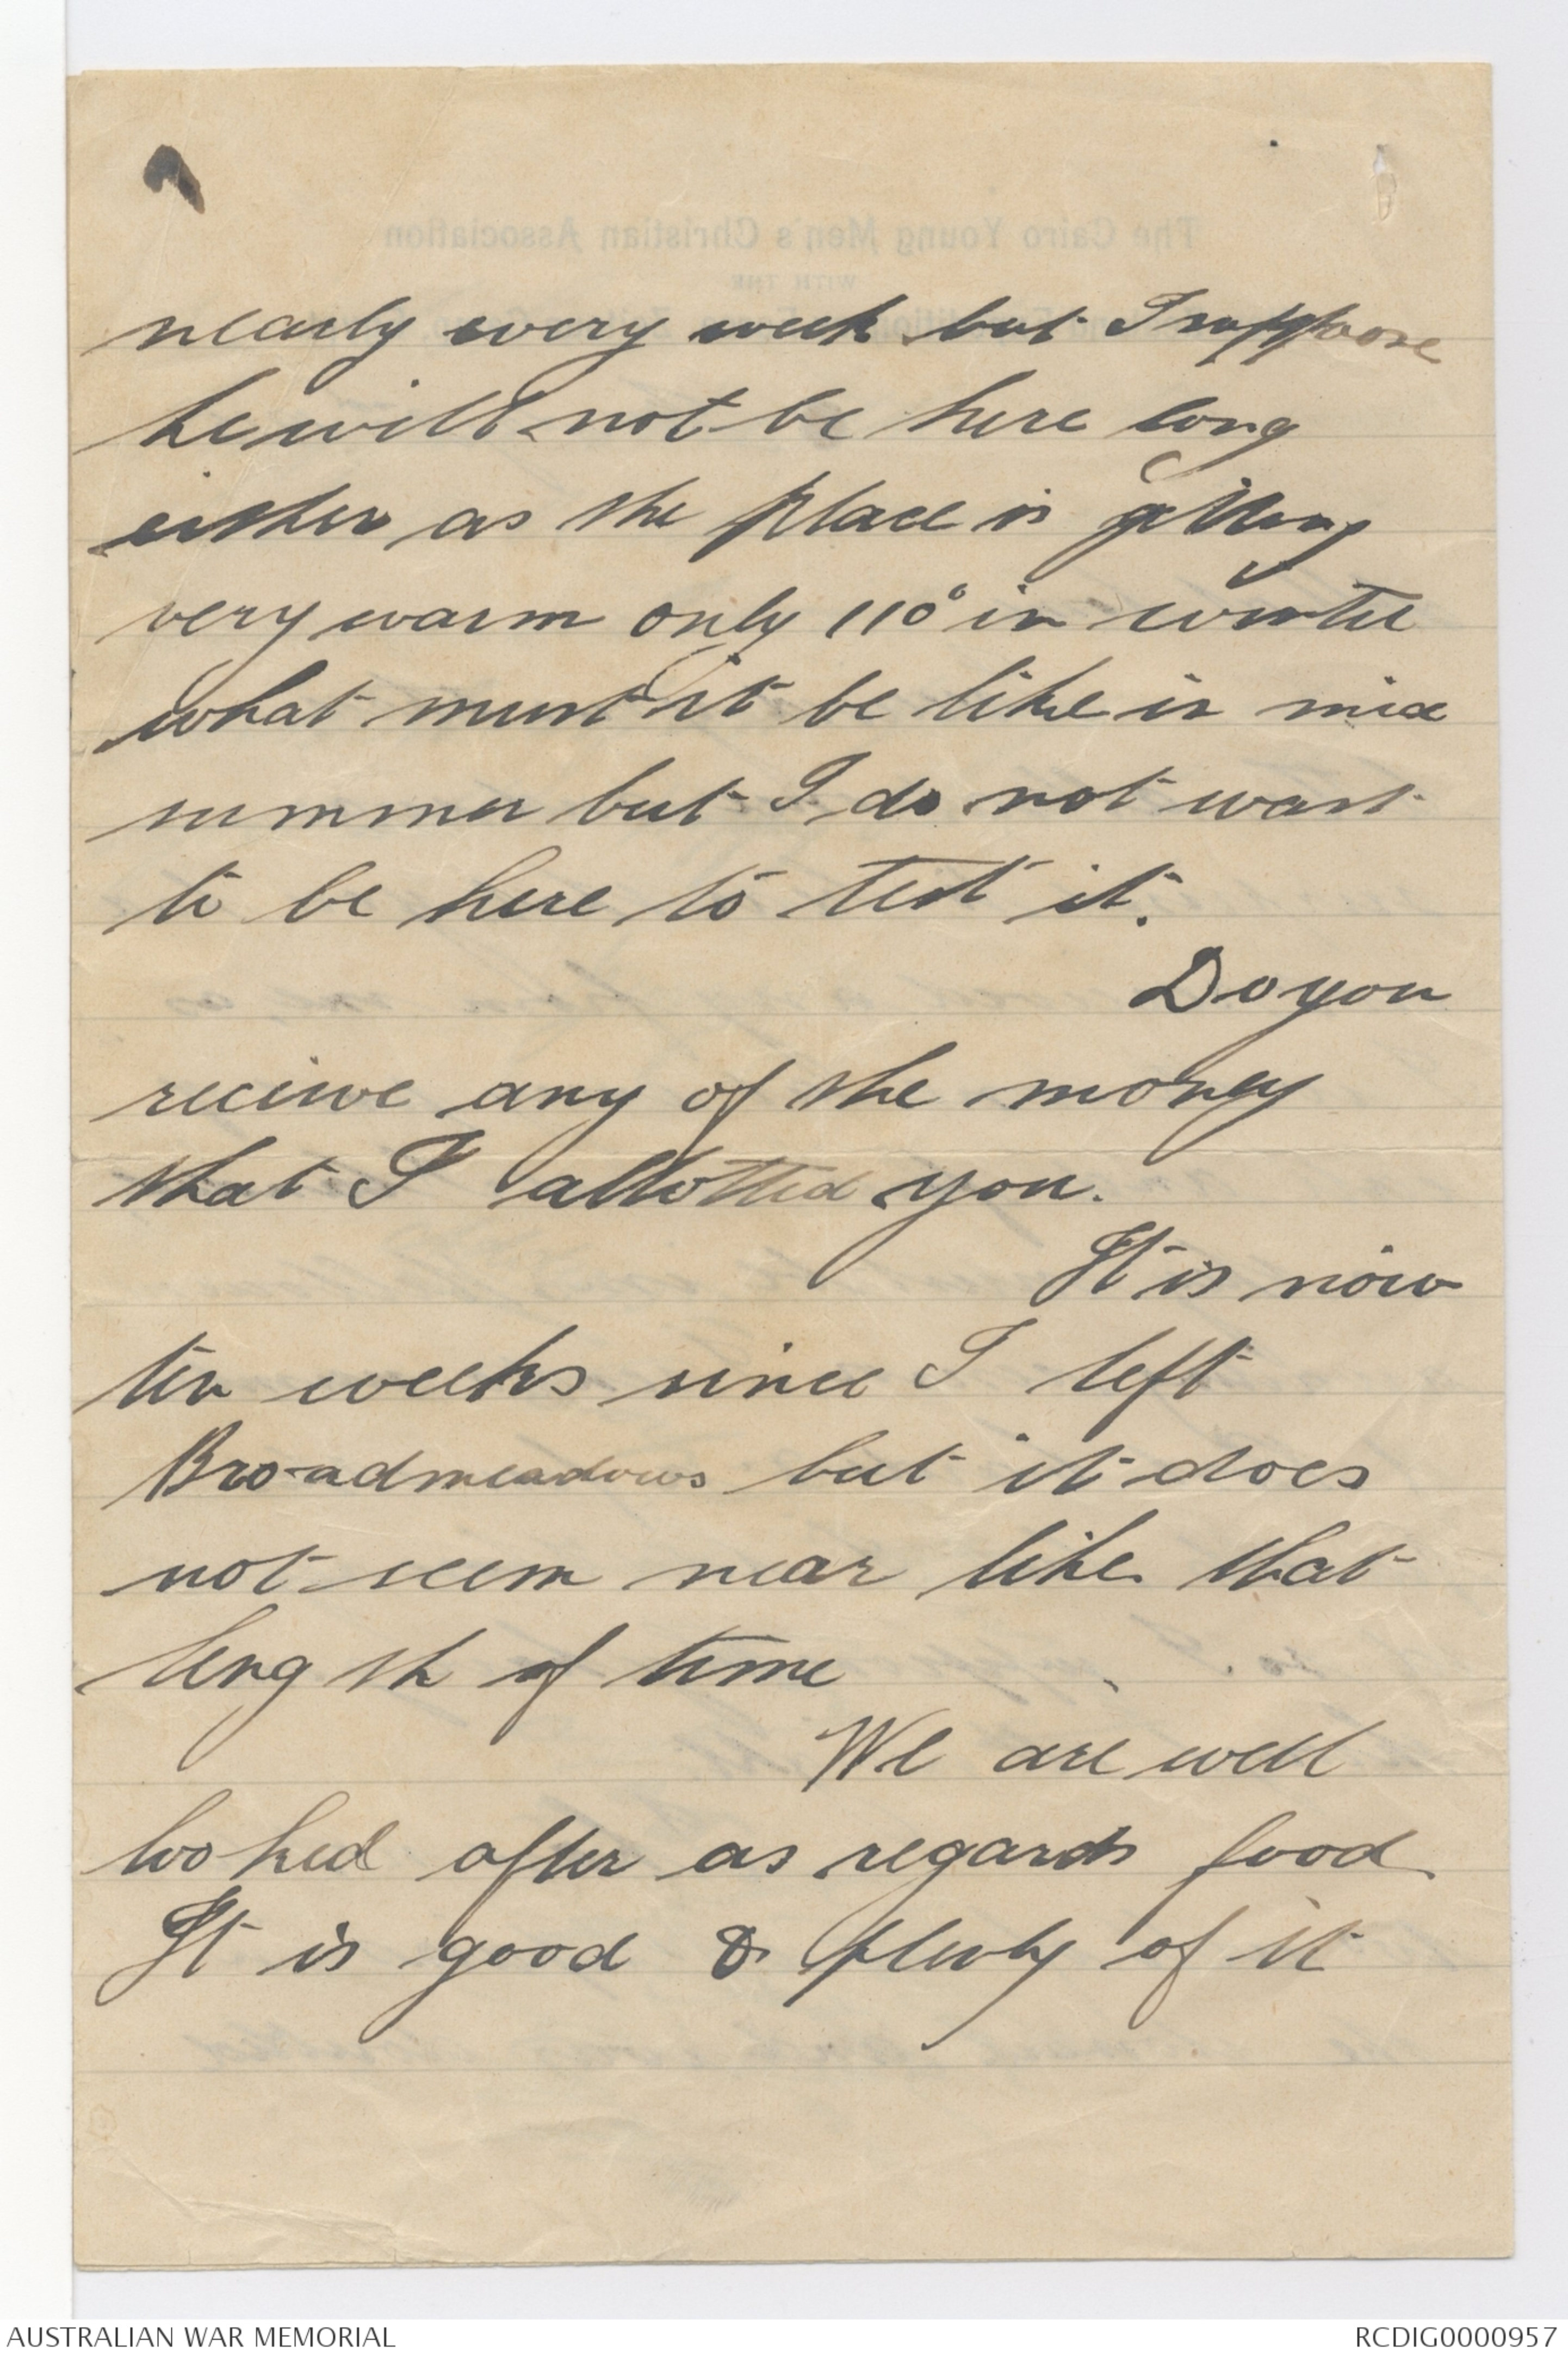 nearly every week but I suppose
he will not be here long
either as the place is getting
very warm only 110° in winter
what must it be like in mid
summer but I do not want
to be here to test it.
Do you
recieve any of the money
that I allotted you.
It is now
ten weeks since I left
Broadmeadows but it does
not seem near like that
length of time
We are well
looked after as regards food
It is good & plenty of it
AUSTRALIAN WAR MEMORIAL
RCDIG0000957